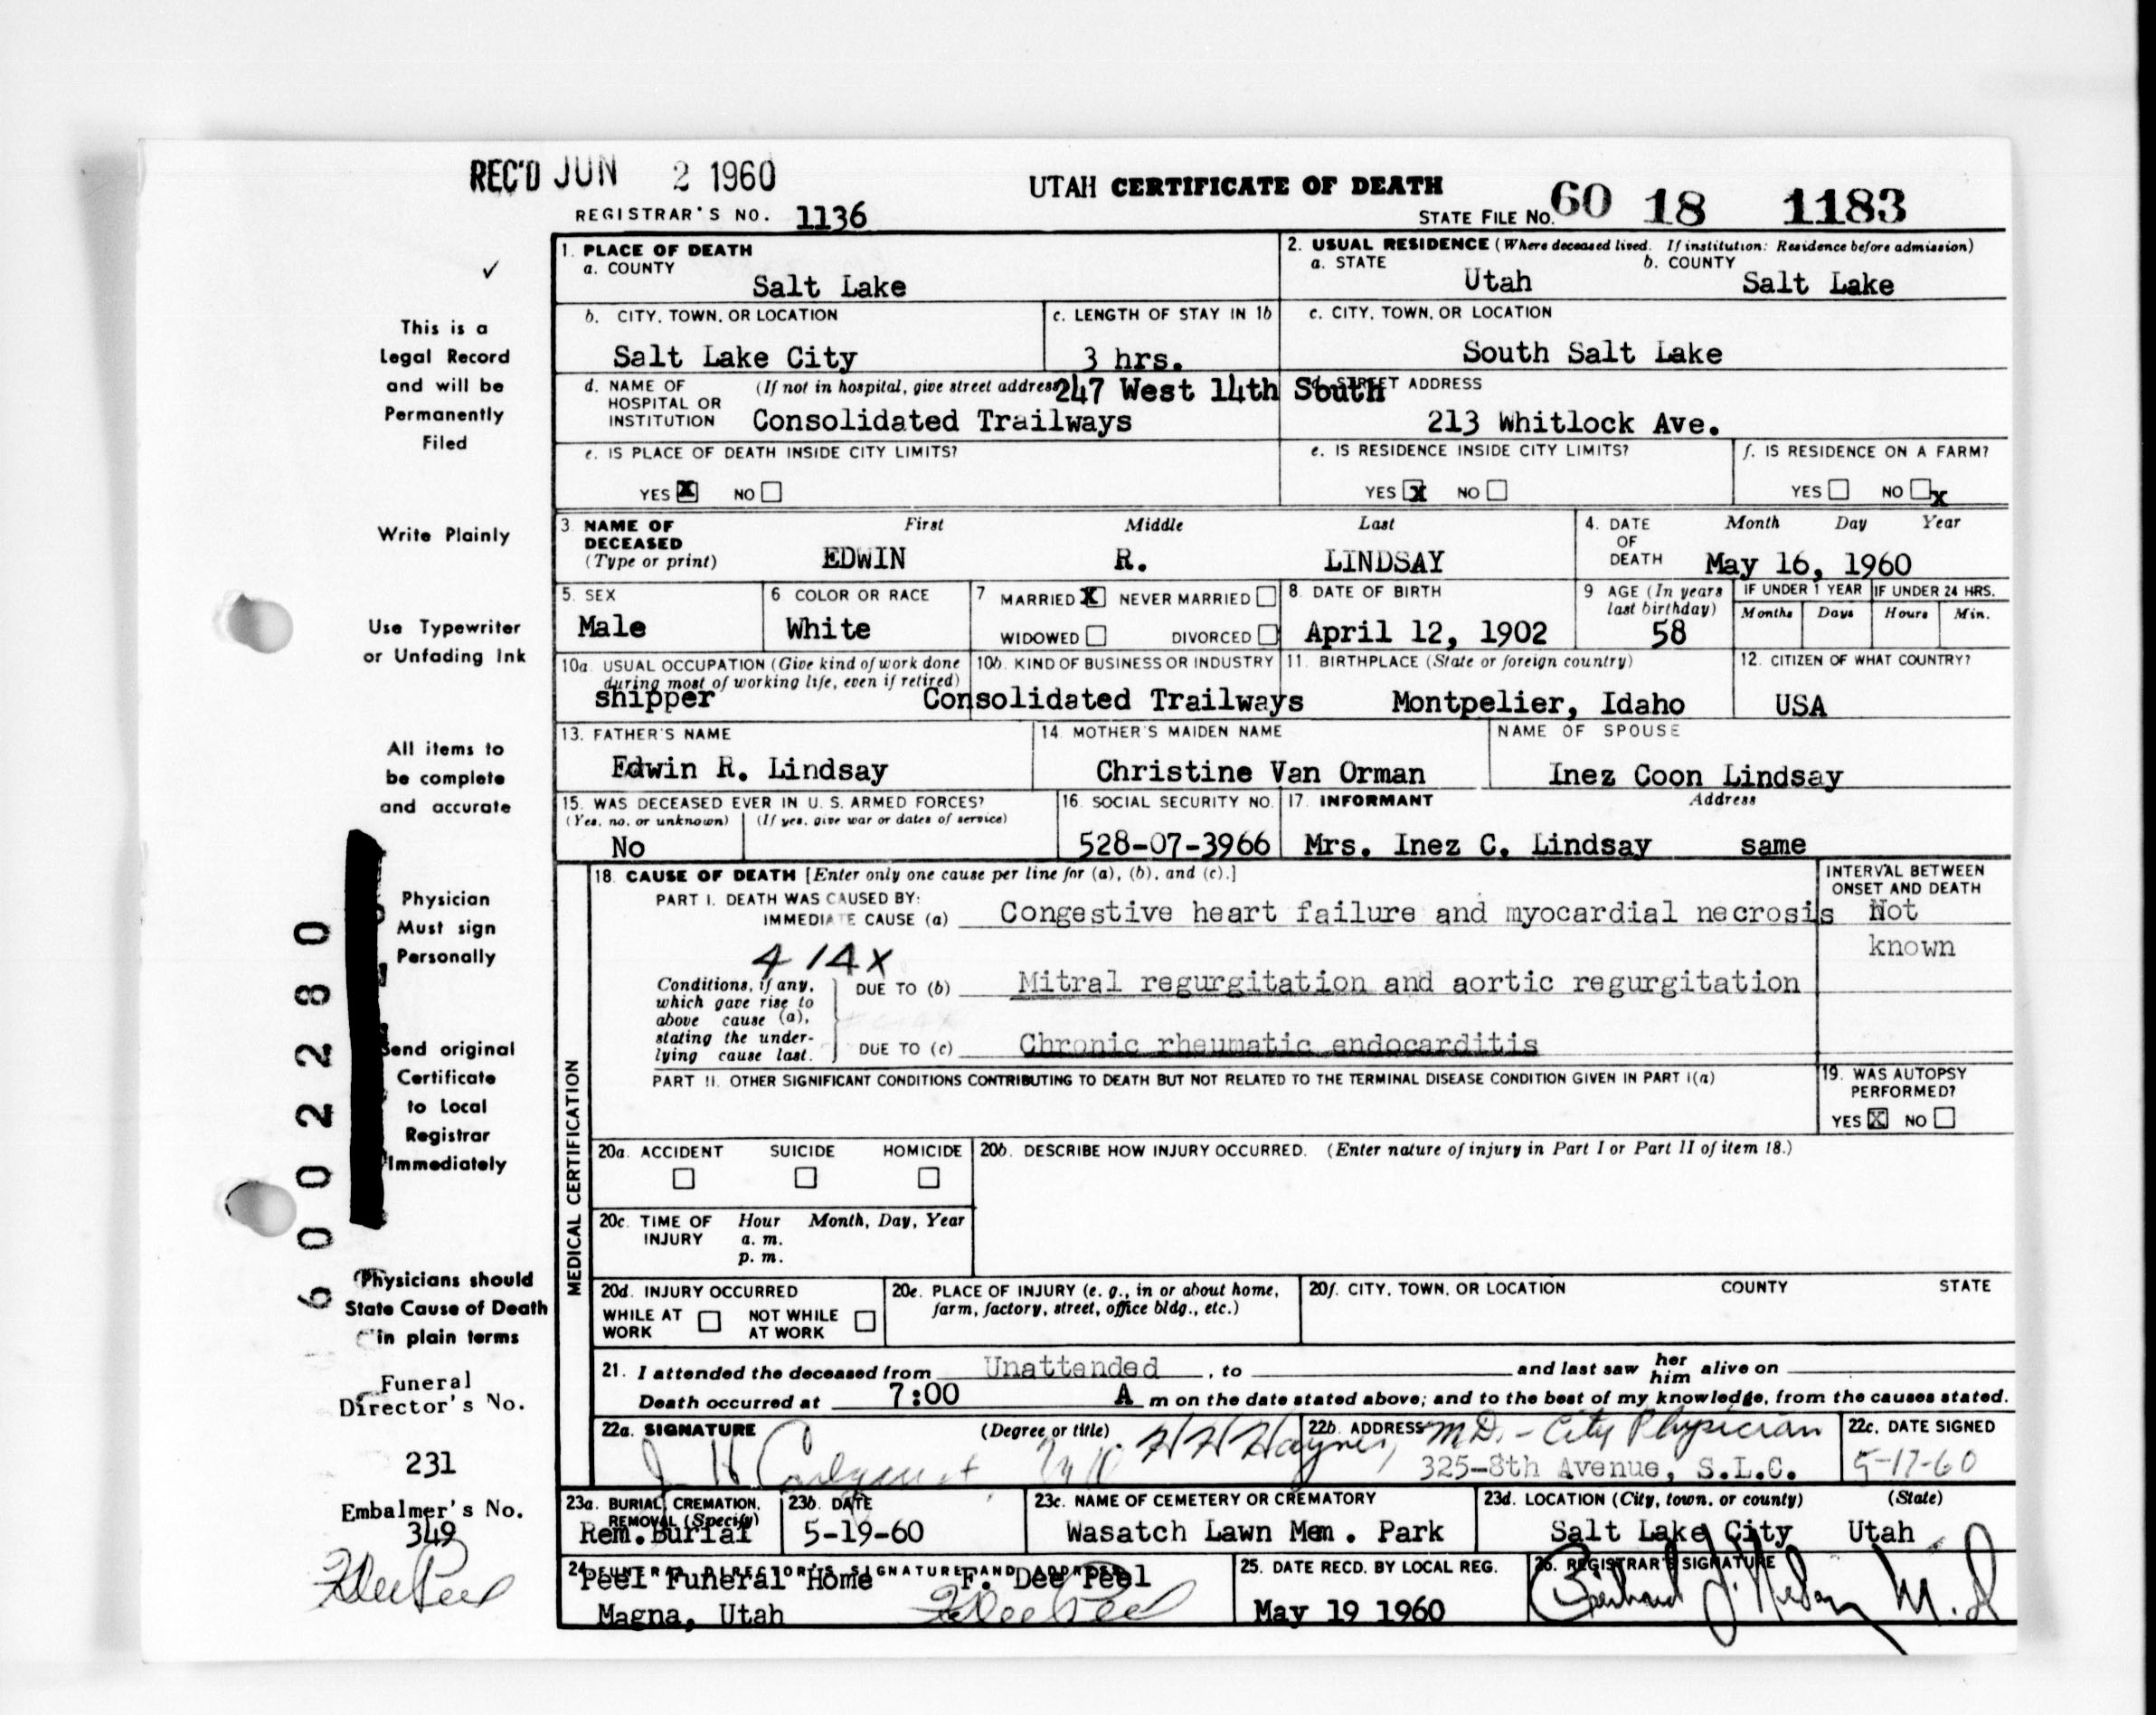 REC'D JUN 2 1960
UTAH CERTIFICATE OF DEATH
REGISTRAR'S NO. 1136
STATE FILE NO. 60 18 1183
✓
This is a
Legal Record
and will be
Permanently
Filed
Write Plainly
Use Typewriter
or Unfading Ink
All items to
be complete
and accurate
Physician
Must sign
Personally
Send original
Certificate
to Local
Registrar
Immediately
Physicians should
State Cause of Death
in plain terms
Funeral
Director's No.
231
Embalmer's No.
349
6002280
1. PLACE OF DEATH
a. COUNTY
Salt Lake
2. USUAL RESIDENCE (Where deceased lived. If institution: Residence before admission)
a. STATE Utah b. COUNTY Salt Lake
b. CITY, TOWN, OR LOCATION
Salt Lake City
c. LENGTH OF STAY IN 1b
3 hrs.
c. CITY, TOWN, OR LOCATION
South Salt Lake
d. NAME OF HOSPITAL OR INSTITUTION (If not in hospital, give street address) 247 West 14th South
Consolidated Trailways
d. STREET ADDRESS
213 Whitlock Ave.
e. IS PLACE OF DEATH INSIDE CITY LIMITS?
YES X NO
e. IS RESIDENCE INSIDE CITY LIMITS?
YES X NO
f. IS RESIDENCE ON A FARM?
YES NO X
3. NAME OF DECEASED (Type or print)
First Middle Last
EDWIN R. LINDSAY
4. DATE OF DEATH Month Day Year
May 16, 1960
5. SEX
Male
6 COLOR OR RACE
White
7 MARRIED X NEVER MARRIED
WIDOWED DIVORCED
8. DATE OF BIRTH
April 12, 1902
9 AGE (In years last birthday)
58
IF UNDER 1 YEAR
Months Days
IF UNDER 24 HRS.
Hours Min.
10a. USUAL OCCUPATION (Give kind of work done during most of working life, even if retired)
shipper
10b. KIND OF BUSINESS OR INDUSTRY
Consolidated Trailways
11. BIRTHPLACE (State or foreign country)
Montpelier, Idaho
12. CITIZEN OF WHAT COUNTRY?
USA
13. FATHER'S NAME
Edwin R. Lindsay
14. MOTHER'S MAIDEN NAME
Christine Van Orman
NAME OF SPOUSE
Inez Coon Lindsay
15. WAS DECEASED EVER IN U. S. ARMED FORCES?
(Yes, no, or unknown) (If yes, give war or dates of service)
No
16. SOCIAL SECURITY NO.
528-07-3966
17. INFORMANT Address
Mrs. Inez C. Lindsay same
MEDICAL CERTIFICATION
18. CAUSE OF DEATH [Enter only one cause per line for (a), (b), and (c).]
INTERVAL BETWEEN ONSET AND DEATH
PART I. DEATH WAS CAUSED BY:
IMMEDIATE CAUSE (a) Congestive heart failure and myocardial necrosis Not
known
414X
Conditions, if any, which gave rise to above cause (a), stating the underlying cause last.
DUE TO (b) Mitral regurgitation and aortic regurgitation
DUE TO (c) Chronic rheumatic endocarditis
PART II. OTHER SIGNIFICANT CONDITIONS CONTRIBUTING TO DEATH BUT NOT RELATED TO THE TERMINAL DISEASE CONDITION GIVEN IN PART I(a)
19. WAS AUTOPSY PERFORMED?
YES X NO
20a. ACCIDENT SUICIDE HOMICIDE
20b. DESCRIBE HOW INJURY OCCURRED. (Enter nature of injury in Part I or Part II of item 18.)
20c. TIME OF INJURY Hour Month, Day, Year
a. m.
p. m.
20d. INJURY OCCURRED
WHILE AT WORK NOT WHILE AT WORK
20e. PLACE OF INJURY (e. g., in or about home, farm, factory, street, office bldg., etc.)
20f. CITY, TOWN, OR LOCATION COUNTY STATE
21. I attended the deceased from Unattended, to and last saw her him alive on
Death occurred at 7:00 A m on the date stated above; and to the best of my knowledge, from the causes stated.
22a. SIGNATURE (Degree or title)
H H Haynes, M.D. - City Physician
22b. ADDRESS
325-8th Avenue, S.L.C.
22c. DATE SIGNED
5-17-60
23a. BURIAL, CREMATION, REMOVAL (Specify)
Rem. Burial
23b. DATE
5-19-60
23c. NAME OF CEMETERY OR CREMATORY
Wasatch Lawn Mem. Park
23d. LOCATION (City, town, or county) (State)
Salt Lake City Utah
24. FUNERAL DIRECTOR'S SIGNATURE AND ADDRESS
Peel Funeral Home F. Dee Peel
Magna, Utah F Dee Peel
25. DATE RECD. BY LOCAL REG.
May 19 1960
26. REGISTRAR'S SIGNATURE
F Dee Peel